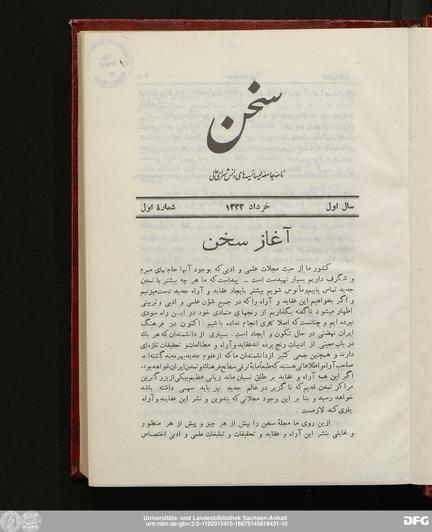 ۱
سخن
نامهٔ جامعه لیسانسیه‌های دانشسرای عالی
سال اول
خرداد ۱۳۲۲
شمارهٔ اول
آغاز سخن
کشور ما از حیث مجلات علمی و ادبی که بوجود آنها حاجتهای مبرم
و شگرف داریم بسیار تهیدست است ـ پیداست که ما هر چه بیشتر با تمدن
جدید تماس یابیم و مأنوس شویم بیشتر بایجاد عقاید و آراء جدید دست میزنیم
و اگر بخواهیم این عقاید و آراء را که در جمیع شؤن علمی و ادبی و تربیتی
اظهار میشود ناگفته بگذاریم از رنجهای متمادی خود در این راه سودی
نبرده ایم و چنانست که اصلا کاری انجام نداده باشیم . اکنون در فرهنگ
ایران نهضتی در حال تکون و ایجاد است . بسیاری از دانشمندان که هر یک
در باب معینی از ادبیات رنج برده اند عقاید و آراء و مطالعات و تحقیقات تازه‌ای
دارند و همچنین جمعی کثیر از دانشمندان ما که از علوم جدید بهره‌مند گشته‌اند
صاحب آراء و اطلاعاتی هستند که طبعاً مایهٔ ترقی سطح فرهنگ و تمدن ایران خواهد بود،
اگر این همه آراء و عقاید بر طاق نسیان ماند زیانی عظیم بیکی از بزرگترین
مراکز تمدن قدیم که ناگزیر در عالم جدید نیز باید سهمی داشته باشد
خواهد رسید و بنا بر این وجود مجلاتی که بتدوین و نشر این عقاید و آراء
یاوری کند لازمست .
ازین روی ما مجلهٔ سخن را بیش از هر چیز و پیش از هر منظور
و غایتی بنشر این آراء و عقاید و تحقیقات و تبلیغات علمی و ادبی اختصاص
Universitäts- und Landesbibliothek Sachsen-Anhalt
urn:nbn:de:gbv:3:5-1192015415-16675145619431-10
DFG